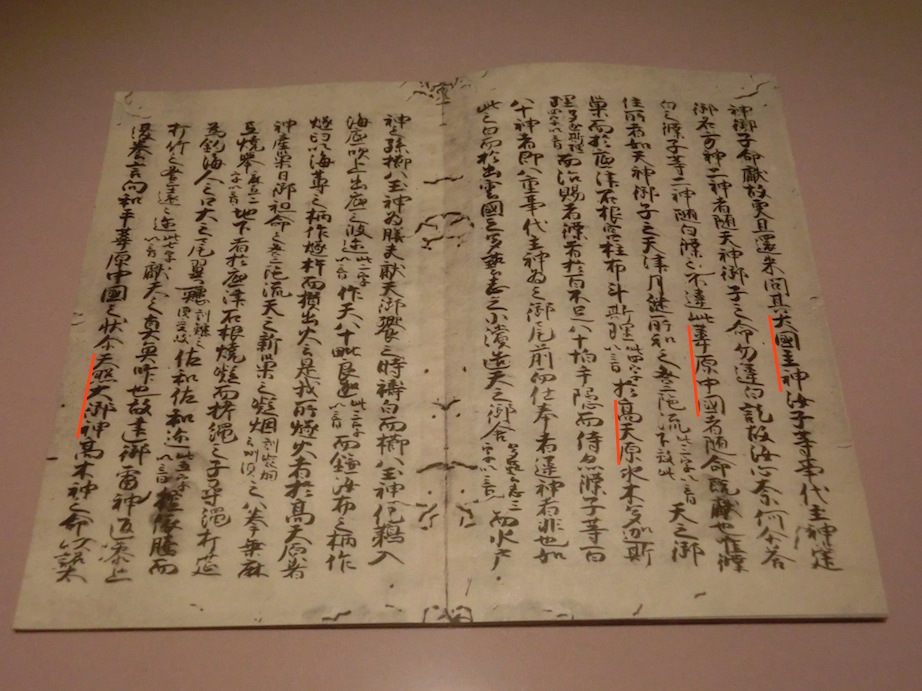 神御子命獻故更且還来問其大國主神汝子等事代主神建
御名方神二神者随天神御子之命勿違白訖故汝心奈何尒答
白之僕子等二神随白僕之不違此葦原中國者随命既獻也唯僕
住所者如天神御子之天津日継所知之登陀流此三字以音下效此天之御
巣而於底津石根宮柱布斗斯理此四字以音於高天原氷木多迦斯
理多迦斯理四字以音而治賜者僕者於百不足八十坰手隠而侍亦僕子等百
八十神者即八重事代主神為神之御尾前而仕奉者違神者非也如
此之白而於出雲國之多藝志之小濱造天之御舎多藝志三字以音而水戸
神之孫櫛八玉神為膳夫獻天御饗之時禱白而櫛八玉神化鵜入
海底咋出底之波迩此二字以音作天八十毗良迦此三字以音而鎌海布之柄作
燧臼以海蓴之柄作燧杵而攅出火云是我所燧火者於高天原者
神産巣日御祖命之登陀流天之新巣之凝烟訓凝烟云州須之八拳垂麻
弖焼挙麻弖二字以音地下者於底津石根焼凝而栲縄之千尋縄打莚
為釣海人之口大之尾翼鱸訓鱸云須受岐佐和佐和迩此五字以音控依騰而
打竹之登遠遠登遠遠迩此七字以音獻天之真魚咋也故建御雷神返参上
復奏言向和平葦原中國之状尒天照大御神高木神之命以詔太